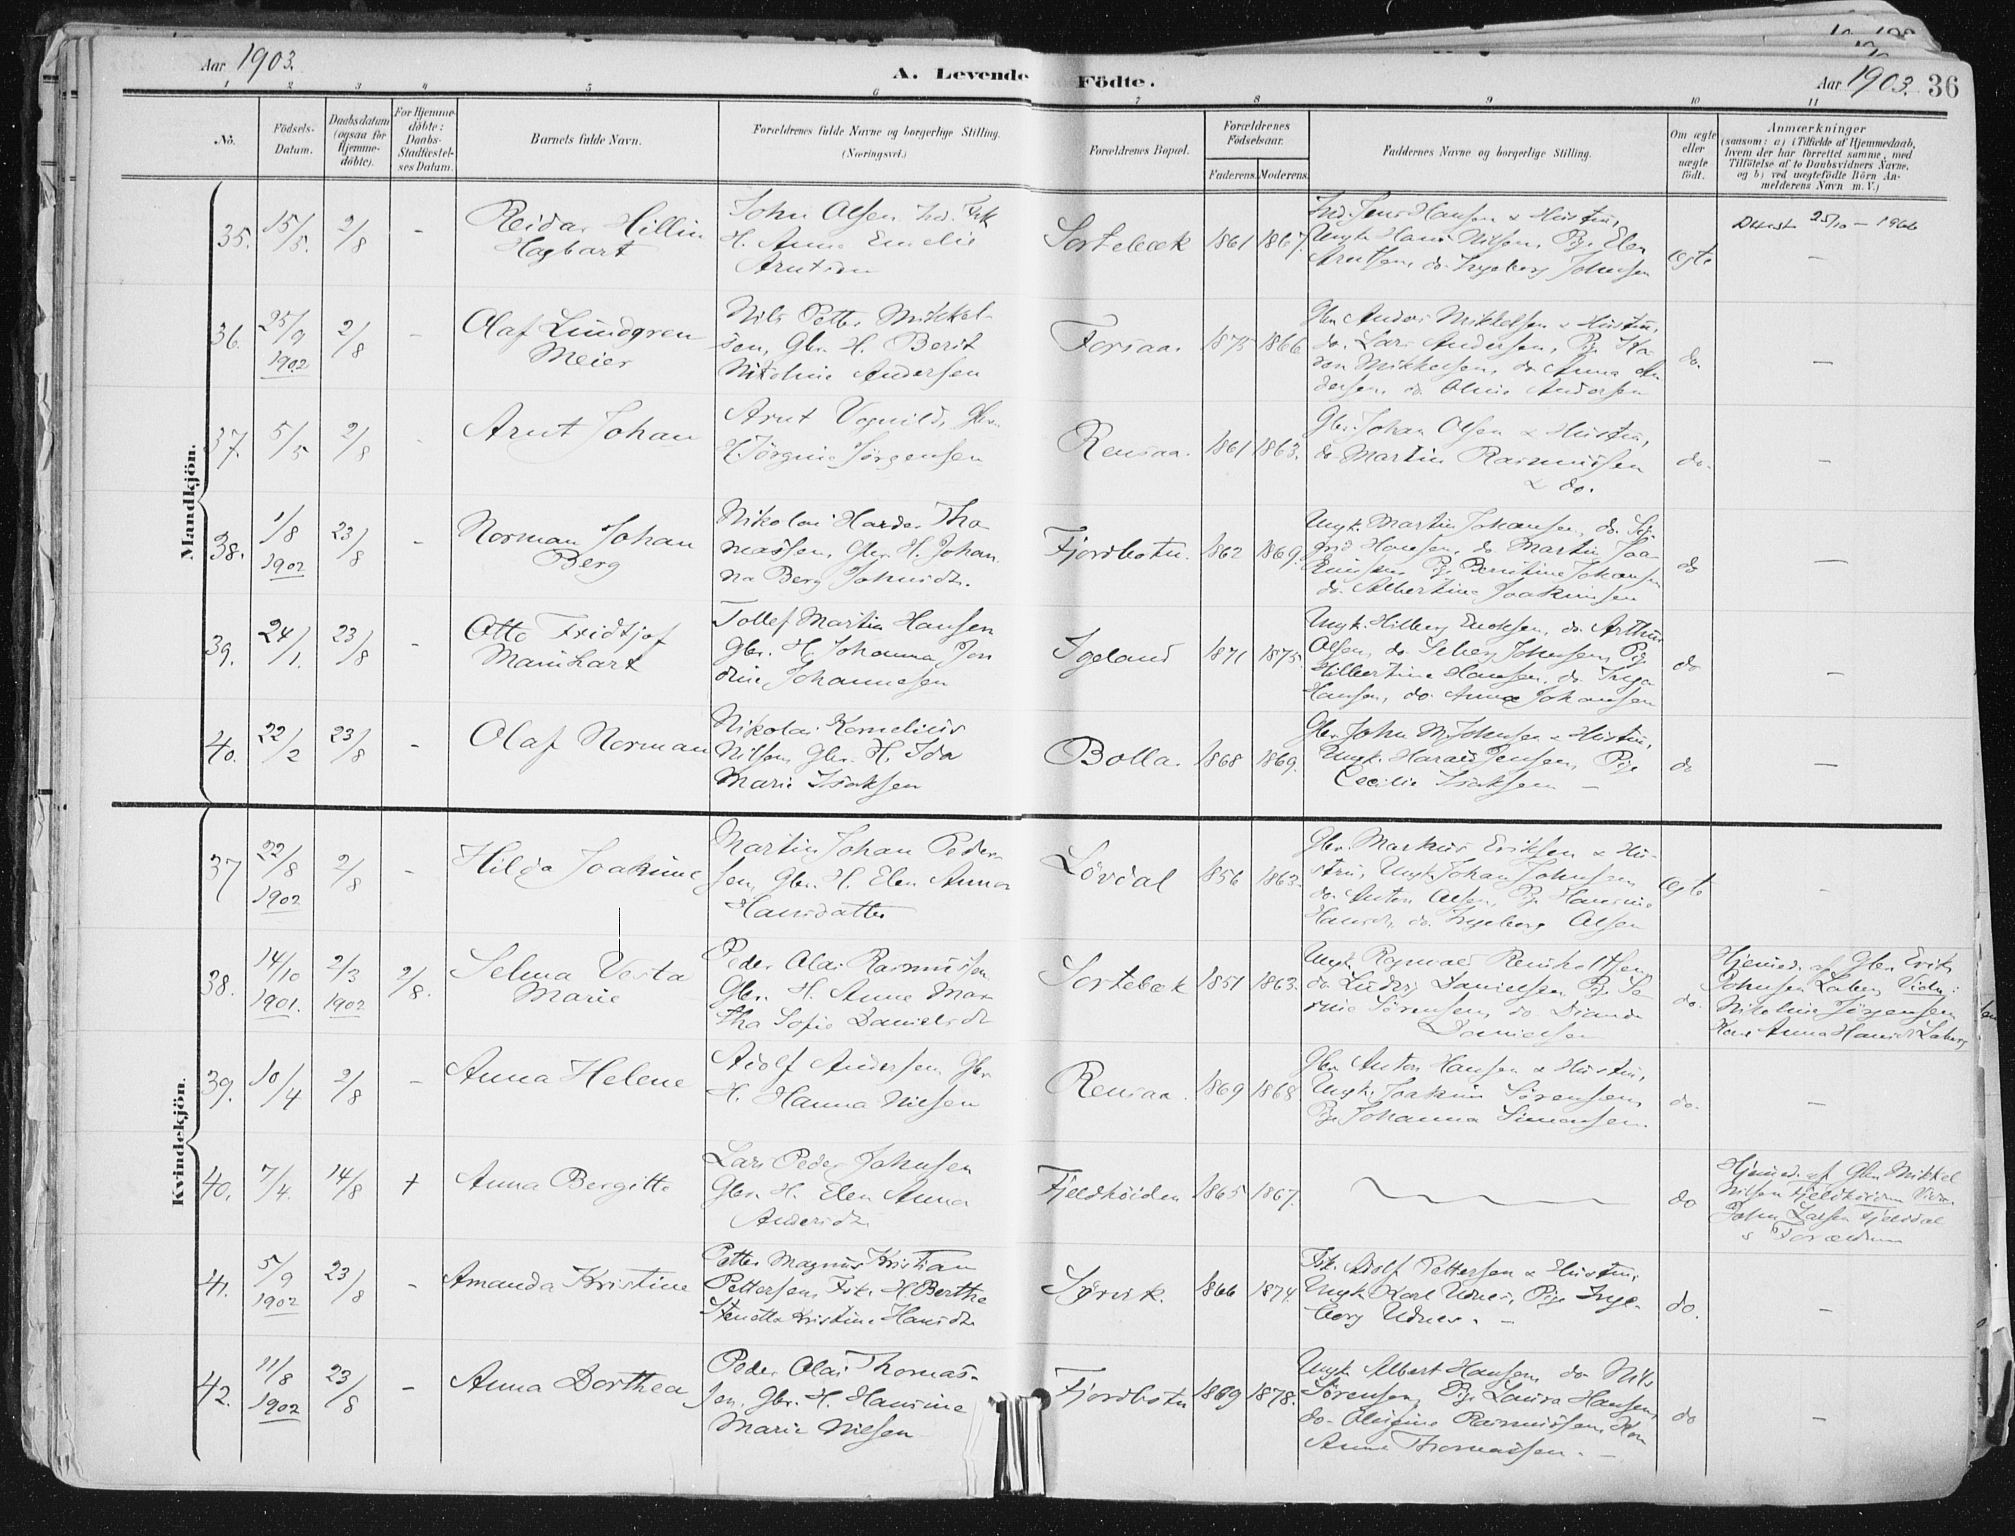 Aar 1903.
A. Levende Födte.
Aar 1903. 36
1 2 3 4 5 6 7 8 9 10 11
No.
Födsels-
Datum.
Daabsdatum
(ogsaa for
Hjemme-
döbte).
For Hjemme-
döbte:
Daabs-
Stadfæstel-
ses Datum.
Barnets fulde Navn.
Forældrenes fulde Navne og borgerlige Stilling.
(Næringsvei.)
Forældrenes Bopæl.
Forældrenes
Födselsaar.
Faderens. Moderens.
Faddernes Navne og borgerlige Stilling.
Om ægte
eller
uægte
födt.
Anmærkninger
(saasom: a) i Tilfælde af Hjemmedaab,
hvem der har forrettet samme, med
Tilföielse af to Daabsvidners Navne,
og b) ved uægtefödte Börn An-
melderens Navn m. V.)
Mandkjön.
35. 15/5. 2/8 -
Reidar Hillin
Hagbart
John Olsen Ind. Fsk
H. Anne Emelie
Arntsen
Sortebæk 1861 1867.
Ind. Jens Hansen & Hustru,
Ungk. Hans Nilsen, Pige Elen
Arntsen, do. Ingeberg Johnsen
Ægte
25/10 - 1966
-
36. 25/9 1902 2/8 -
Olaf Lundgren
Meier
Nils Petter Mikkel-
sen, Gbr. H. Berit
Nikoline Andersen
Forsaa. 1875 1866
Gbr. Anders Mikkelsen & Hustru,
do. Lars Andersen, Pige Ka-
ren Mikkelsen, do Anna An
dersen, do. Oline Andersen
do. -
37. 5/5 2/8
Arnt Johan
Arnt Vognild, Gbr.
H. Jørgine Jørgensen
Rensaa. 1861 1863.
Gbr. Johan Olsen & Hustru,
do Martin Rasmussen
& do.
do. -
38. 1/8 1902 23/8 -
Norman Johan
Berg
Nikolai Harder Tho
massen, Gbr. H. Johan
na Berg Johnsdtr.
Fjordbotn. 1862 1869.
Ungk. Martin Johansen, do. Si
grid Hansen, do Martin Joa-
kimsen Pige Berntine Johansen
do. Albertine Joakimsen
do -
39. 24/1. 23/8 -
Otto Fridtjof
Mainhart
Tollef Martin Hansen
Gbr. H. Johanna Jen
dine Johannesen
Igeland 1871 1875.
Ungk. Hilberg Enoksen, do. Arthur
Olsen, do Johnsen, Pige
Hilbertine Hansen, do. Inga
Hansen, do. Anna Johansen
do -
40. 22/2 23/8 -
Olaf Norman
Nikolai Kornelius
Nilsen, Gbr. H. Ida
Marie Isaksen
Bolla. 1868 1869.
Gbr. John M. Johnsen & Hustru,
Ungk. Harald Jensen, Pige
Cecilie Isaksen -
do -
Kvindekjön.
37 22/8 1902 2/8 -
Hilda Joakime
Martin Johan Peder-
sen, Gbr. H. Elen Anna
Hansdatter
Lövdal 1856 1863.
Gbr. Markus Eriksen & Hu-
stru, Ungk. Johan Johnsen,
do. Anton Olsen, Pige Hansine
Hansdtr, do. Ingeborg Olsen
Ægte -
38. 14/10 1901. 2/3 1902 2/8.
Selma Vesta
Marie
Peder Olai Rasmussen
Gbr. H. Anne Mar
tha Sofie Danielsdtr
Sortebæk 1851 1863.
Ungk. Ragnald Reinholtsen,
do. Ludvig Danielsen Pige Sa-
rine Sørensen, do. Dianda
Danielsen
do.
Hjemd. af Gbr. Erik
Johnsen Laberg Vidn:
Nikoline Jørgensen
Kone Anna Hansdtr Laberg
39. 10/4 2/8 -
Anna Helene
Adolf Andersen Gbr
H. Hanna Nilsen
Rensaa. 1869 1868
Gbr. Anton Hansen & Hustru,
Ungk. Joakim Sørensen,
Pige Johanna Simonsen.
do. -
40. 7/4. 14/8 +
Anna Bergitte
Lars Peder Johnsen
Gbr. H. Elen Anna
Andersdtr
Fjeldhöiden 1865 1867.
do
Hjemd. af Gbr. Mikkel
Nilsen Fjeldhöiden Vidn.
John Larsen Fjeldal
s Forældrene
41. 5/9 1902 23/8 -
Amanda Kristine
Petter Magnus Kristian
Pettersen, Fsk. H. Berthe
Kristine Hansdtr
Sørvik 1866 1874.
Fsk. Adolf Pettersen & Hustru,
Ungk. Karl Udnes, Pige Inge-
borg Udnes. -
do. -
42. 11/8 1902 23/8 -
Anna Dorthea
Peder Olai Thomas-
sen, Gbr. H. Hansine
Marie Nilsen
Fjordbotn 1869 1878.
Ungk. Albert Hansen, do Nils
Sørensen, Pige Laura Hansen,
do. Rasmussen, Kone
Anne Thomassen. -
do -